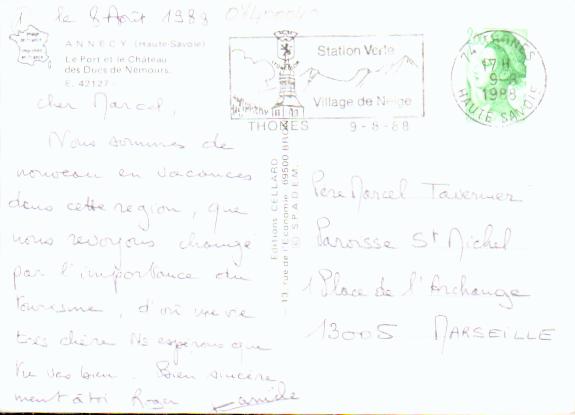 le 8 Août 1988
ANNECY (Haute-Savoie)
Le Port et le Château
des Ducs de Nemours.
E. 42127
Cher Marcel,
Nous sommes de
nouveau en vacances
dans cette region, que
nous revoyons change
par l'importance du
tourisme, d'où une vie
très chère Ns esperons que
tu vas bien. Bien sincere
ment à toi Roger
Station Verte
Village de Neige
THONES 9-8-88
17H
9-8
1988
HAUTE SAVOIE
Editions CELLARD
13, rue de l'Economie, 69500 BRON
© SPADEM
Père Marcel Tavernier
Paroisse St Michel
1 Place de l'Archange
13005 MARSEILLE